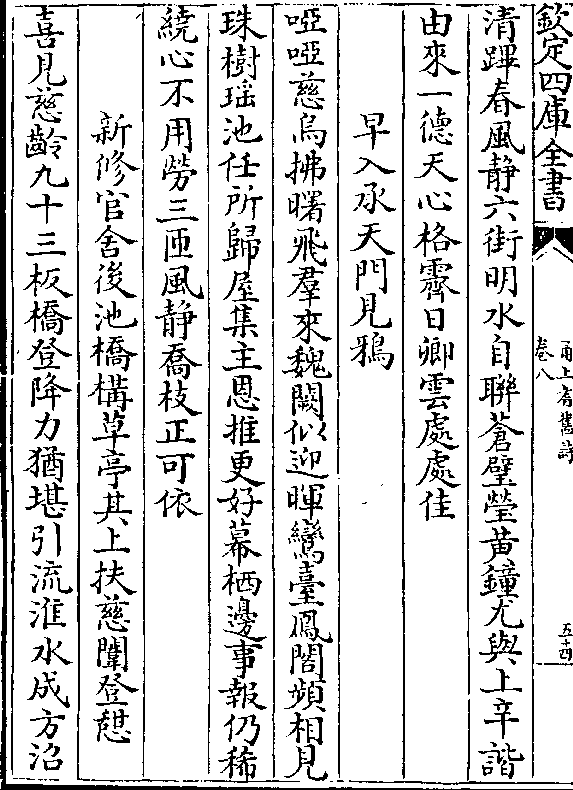 欽定四庫全書
甬上耆舊詩
卷八
五十四
清蹕春風静六街明水自聯蒼璧瑩黄鐘尤與上辛諧
由來一德天心格霽日卿雲處處佳
早入承天門見鴉
啞啞慈烏拂曙飛羣來魏闕似迎暉鸞臺鳳閣頻相見
珠樹瑶池任所歸屋集主恩推更好幕栖邊事報仍稀
繞心不用勞三匝風静喬枝正可依
新修官舍後池橋構草亭其上扶慈闈登憇
喜見慈齡九十三板橋登降力猶堪引流淮水成方沼